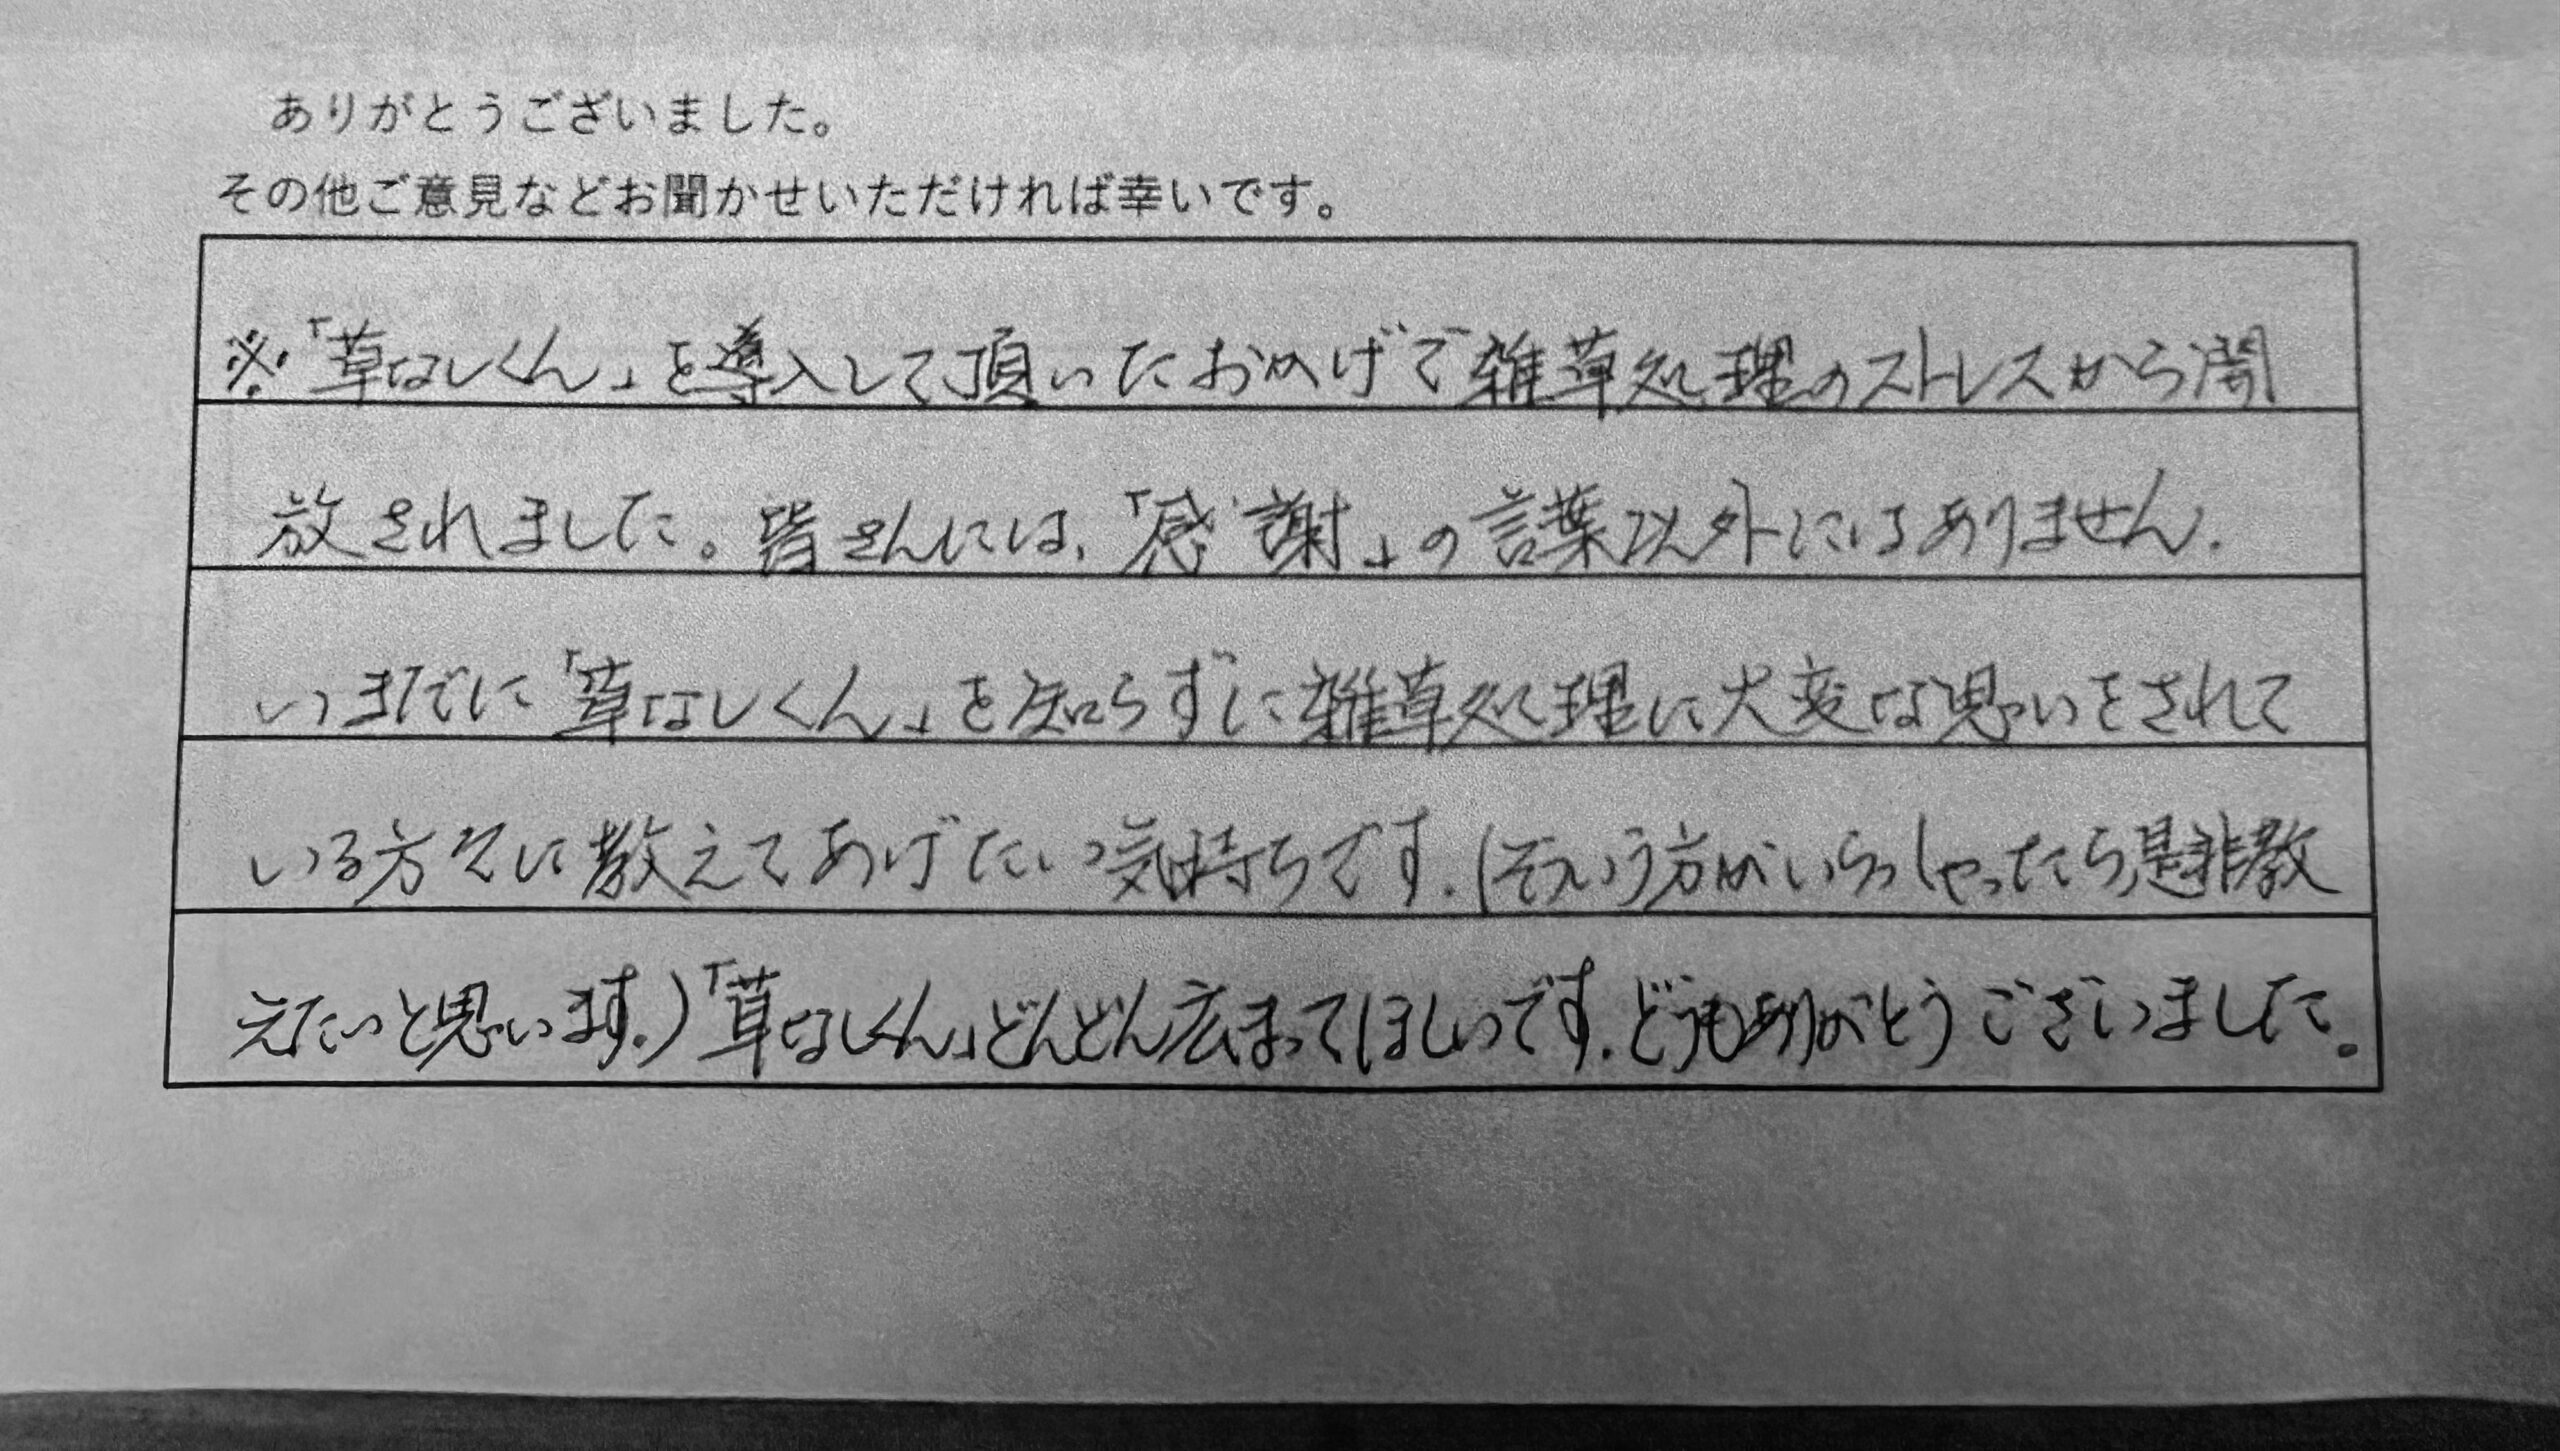 ありがとうございました。
その他ご意見などお聞かせいただければ幸いです。
※「草なしくん」を導入して頂いたおかげで雑草処理のストレスから開
放されました。皆さんには、「感謝」の言葉以外にはありません.
いままでに「草なしくん」を知らずに雑草処理に大変な思いをされて
いる方々に教えてあげたい気持ちです.(そういう方がいらっしゃったら,是非教
えたいと思います。)「草なしくん」どんどん広まってほしいです.どうもありがとうございました。